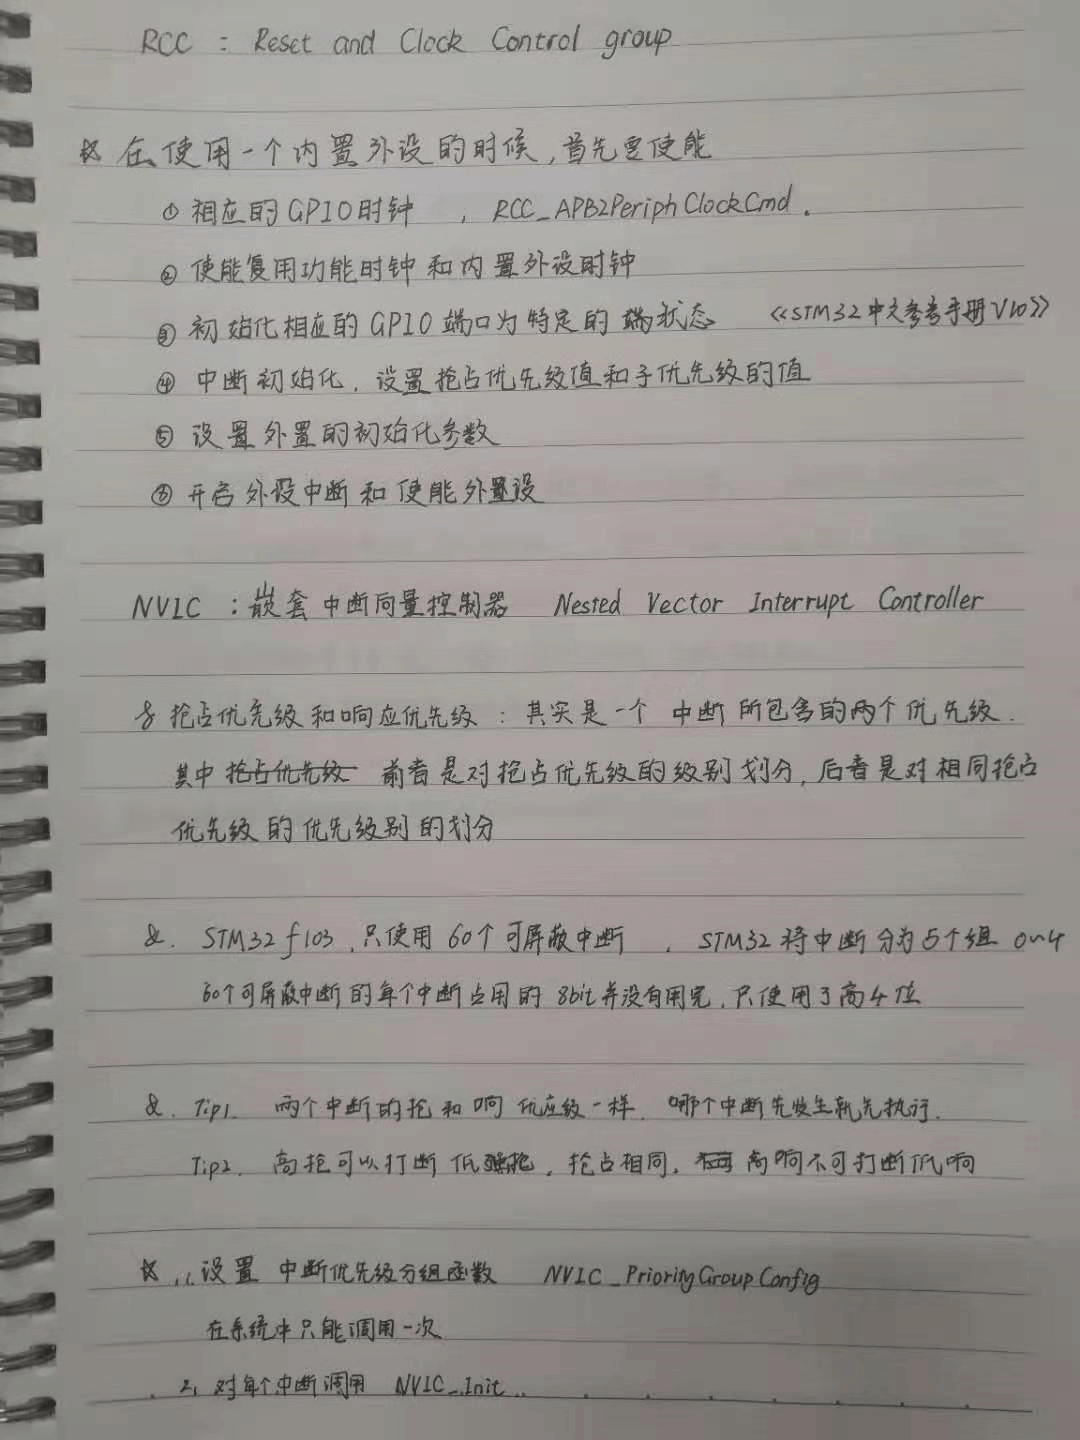 RCC : Reset and Clock Control group
☆ 在使用一个内置外设的时候,首先要使能
① 相应的GPIO时钟 , RCC_APB2PeriphClockCmd.
② 使能复用功能时钟和内置外设时钟
③ 初始化相应的GPIO端口为特定的端状态 《STM32中文参考手册V10》
④ 中断初始化,设置抢占优先级值和子优先级的值
⑤ 设置外置的初始化参数
⑥ 开启外设中断和使能外设
NVIC : 嵌套中断向量控制器 Nested Vector Interrupt Controller
& 抢占优先级和响应优先级 : 其实是一个 中断所包含的两个优先级.
其中 抢占优先级 前者是对抢占优先级的级别划分,后者是对相同抢占
优先级的优先级别的划分
&. STM32 f103 ,只使用60个可屏蔽中断 , STM32将中断分为5个组 0~4
60个可屏蔽中断的每个中断占用的8bit并没有用完,只使用了高4位
&. Tip1. 两个中断的抢和响优应级一样. 哪个中断先发生就先执行.
Tip2. 高抢可以打断低抢, 抢占相同, 高响不可打断低响
☆ 1. 设置 中断优先级分组函数 NVIC_PriorityGroupConfig
在系统中只能调用一次
2, 对每个中断调用 NVIC_Init